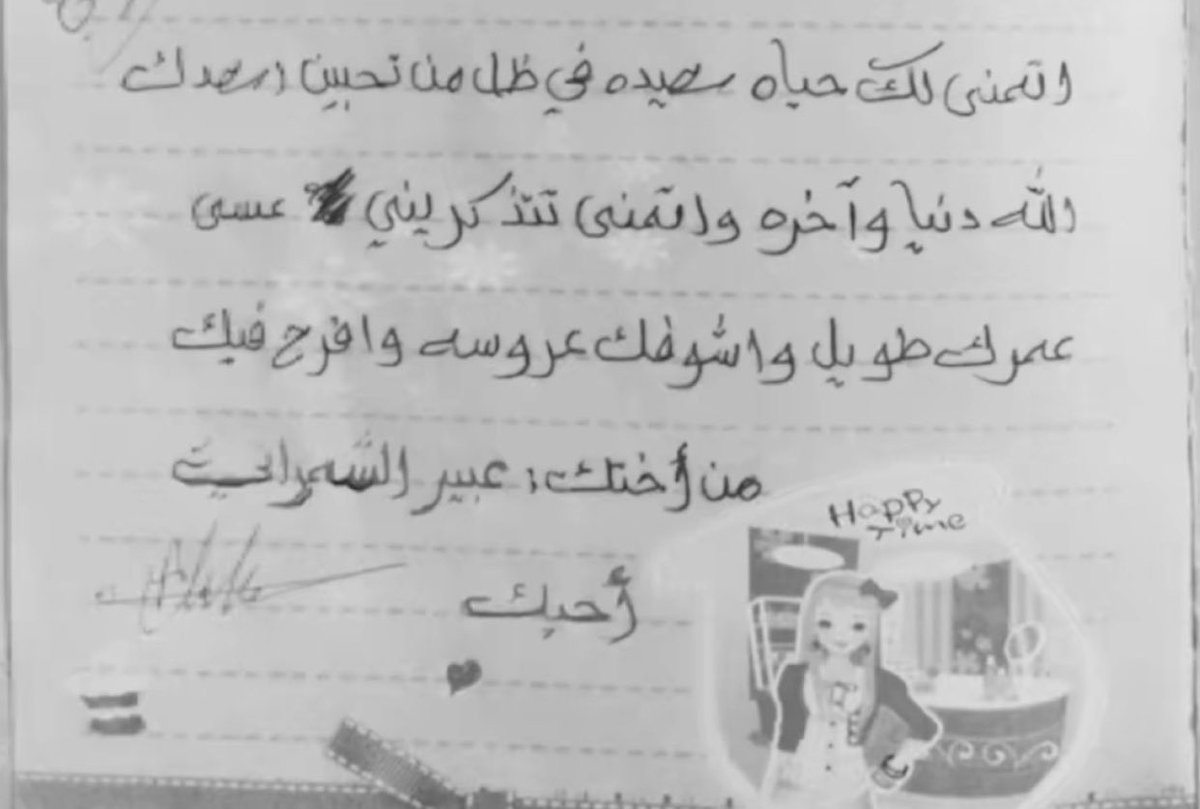 اتمنى لك حياه سعيده في ظل من تحبين اسعدك
الله دنيا وآخره واتمنى تتذكريني عسى
عمرك طويل واشوفك عروسه وافرح فيك
من أختك: عبير الشمراني
أحبك
Happy
Time